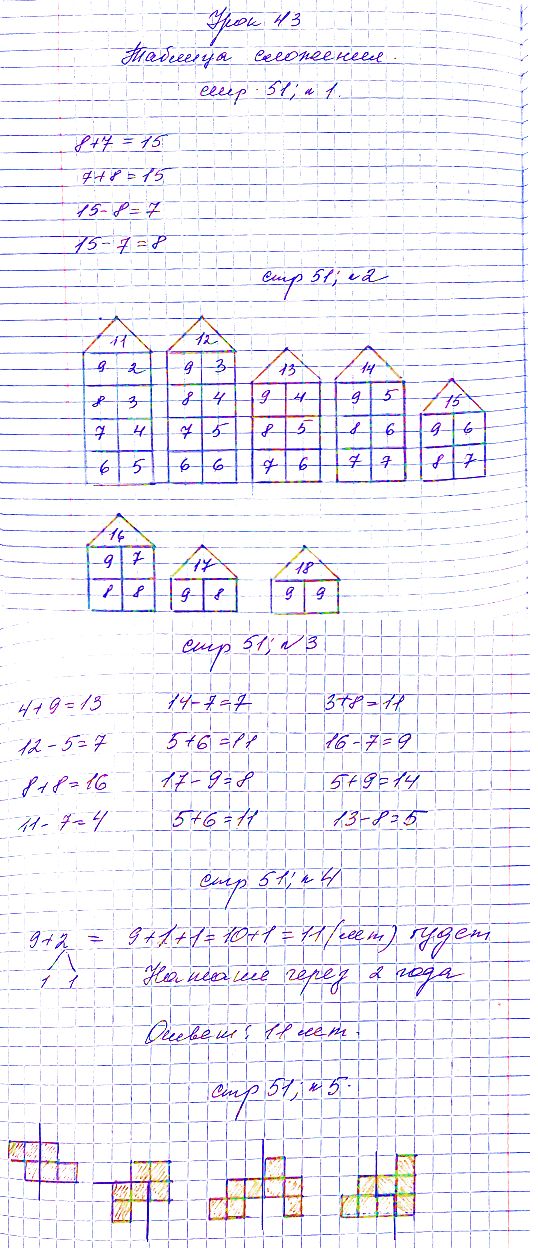 Урок 43
Таблица сложения.
стр. 51; №1.
8+7=15
7+8=15
15-8=7
15-7=8
стр 51; №2
11 12 13 14 15
9 2 9 3
8 3 8 4 9 4 9 5
7 4 7 5 8 5 8 6 9 6
6 5 6 6 7 6 7 7 8 7
16 17 18
9 7
8 8 9 8 9 9
стр 51; №3
4+9=13 14-7=7 3+8=11
12-5=7 5+6=11 16-7=9
8+8=16 17-9=8 5+9=14
11-7=4 5+6=11 13-8=5
стр 51; №4
9+2 = 9+1+1=10+1=11(лет) будет
1 1 Наташе через 2 года
Ответ: 11 лет.
стр 51; №5.